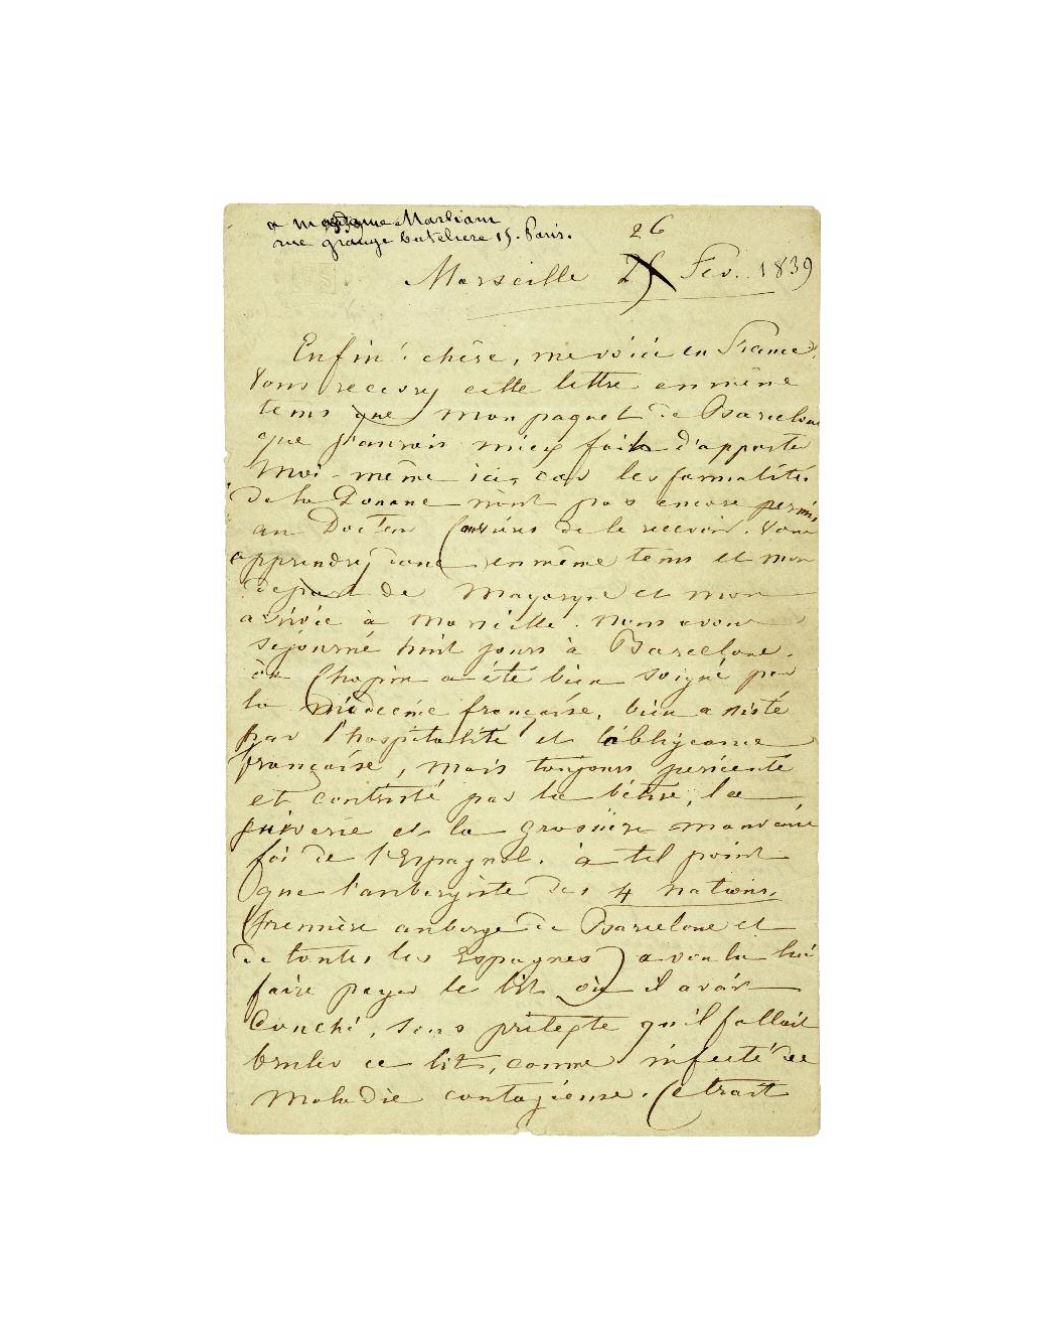 a madame Marliani
rue grange batelière 15. Paris.
26
Marseille 25 Fev. 1839
Enfin! chère, me voici en France.
Vous recevrez cette lettre en même
tems que mon paquet de Barcelone
que j'aurais mieux fait d'apporter
moi-même ici, car les formalités
de la Douane n'ont pas encore permis
au Docteur Cauvières de le recevoir. Vous
apprendrez donc en même tems et mon
départ de Mayorque et mon
arrivée à Marseille. Nous avons
séjourné huit jours à Barcelone.
où Chopin a été bien soigné par
la médecine française, bien assisté
par l'hospitalité et l'obligeance
française, mais toujours persécuté
et contristé par la bêtise, la
juiverie et la grossière mauvaise
foi de l'Espagnol. à tel point
que l'aubergiste des 4 nations,
(première auberge de Barcelone et
de toutes les Espagnes) a voulu lui
faire payer le lit où il avait
Couché, sous prétexte qu'il fallait
bruler ce lit, comme infecté de
maladie contagieuse. Ce trait